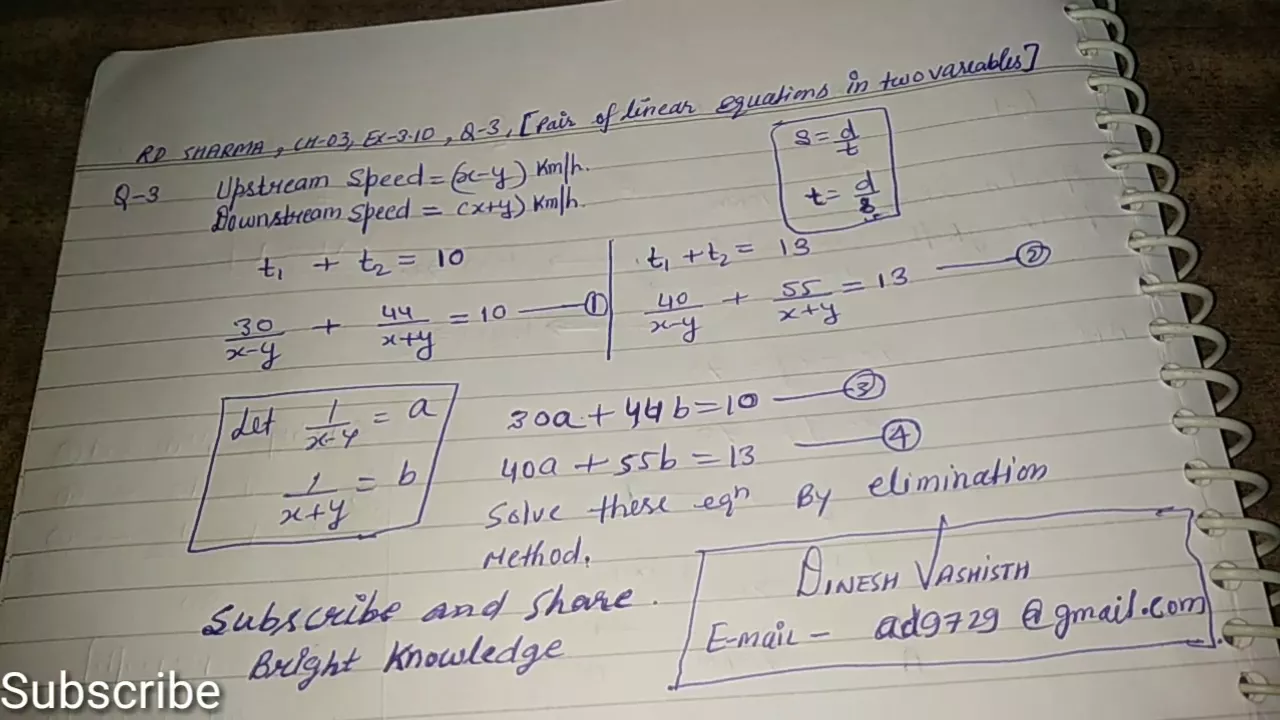 RD SHARMA, CH-03, EX-3.10, Q-3, [Pair of linear equations in two variables]
Q-3 Upstream Speed = (x-y) Km/h.
Downstream Speed = (x+y) Km/h.
s = d/t
t = d/s
t₁ + t₂ = 10
30/(x-y) + 44/(x+y) = 10 — ①
t₁ + t₂ = 13
40/(x-y) + 55/(x+y) = 13 — ②
Let 1/(x-y) = a
1/(x+y) = b
30a + 44b = 10 — ③
40a + 55b = 13 — ④
Solve these eqn By elimination
Method.
Subscribe and Share.
Bright Knowledge
DINESH VASHISTH
E-mail - ad9729@gmail.com
Subscribe